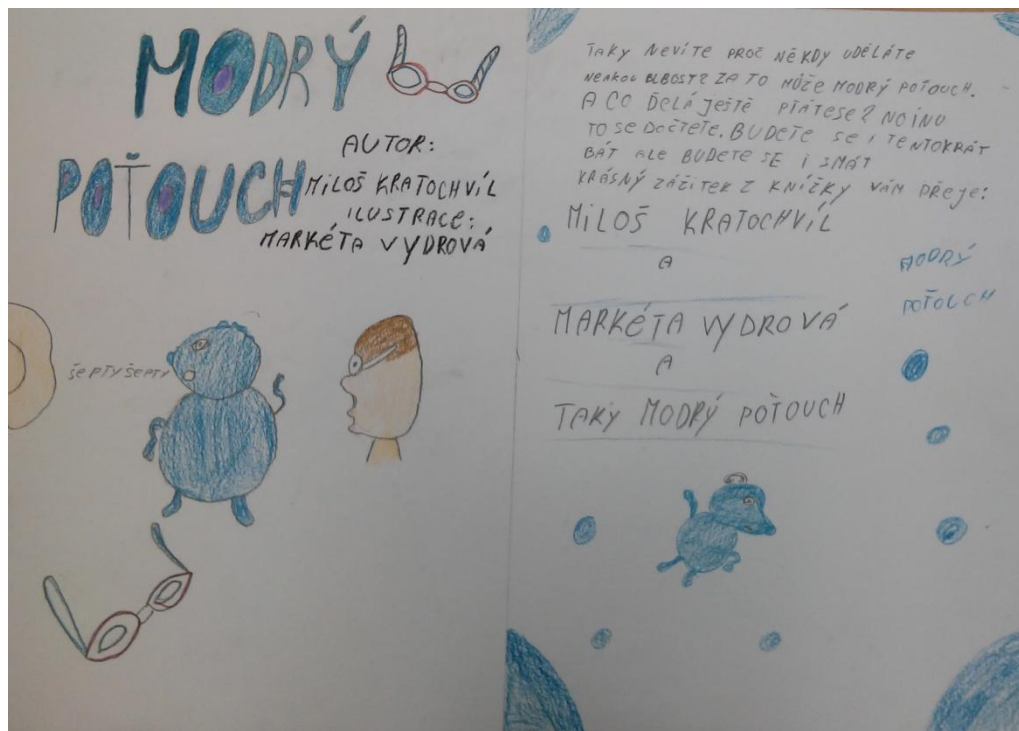 MODRÝ
POŤOUCH
AUTOR:
MILOŠ KRATOCHVÍL
ILUSTRACE:
MARKÉTA VYDROVÁ
ŠEPTYŠEPTY
TAKY NEVÍTE PROČ NĚKDY UDĚLÁTE
NEAKOU BLBOST? ZA TO MŮŽE MODRÝ POŤOUCH.
A CO ĎELÁ JEŠTĚ PTÁTESE? NOINU
TO SE DOČTETE. BUDETE SE I TENTOKRÁT
BÁT ALE BUDETE SE I SMÁT
KRÁSNÝ ZÁŽITEK Z KNÍŽKY VÁM PŘEJE:
MILOŠ KRATOCHVÍL
A
MARKÉTA VYDROVÁ
A
TAKY MODRÝ POŤOUCH
MODRÝ
POŤOUCH